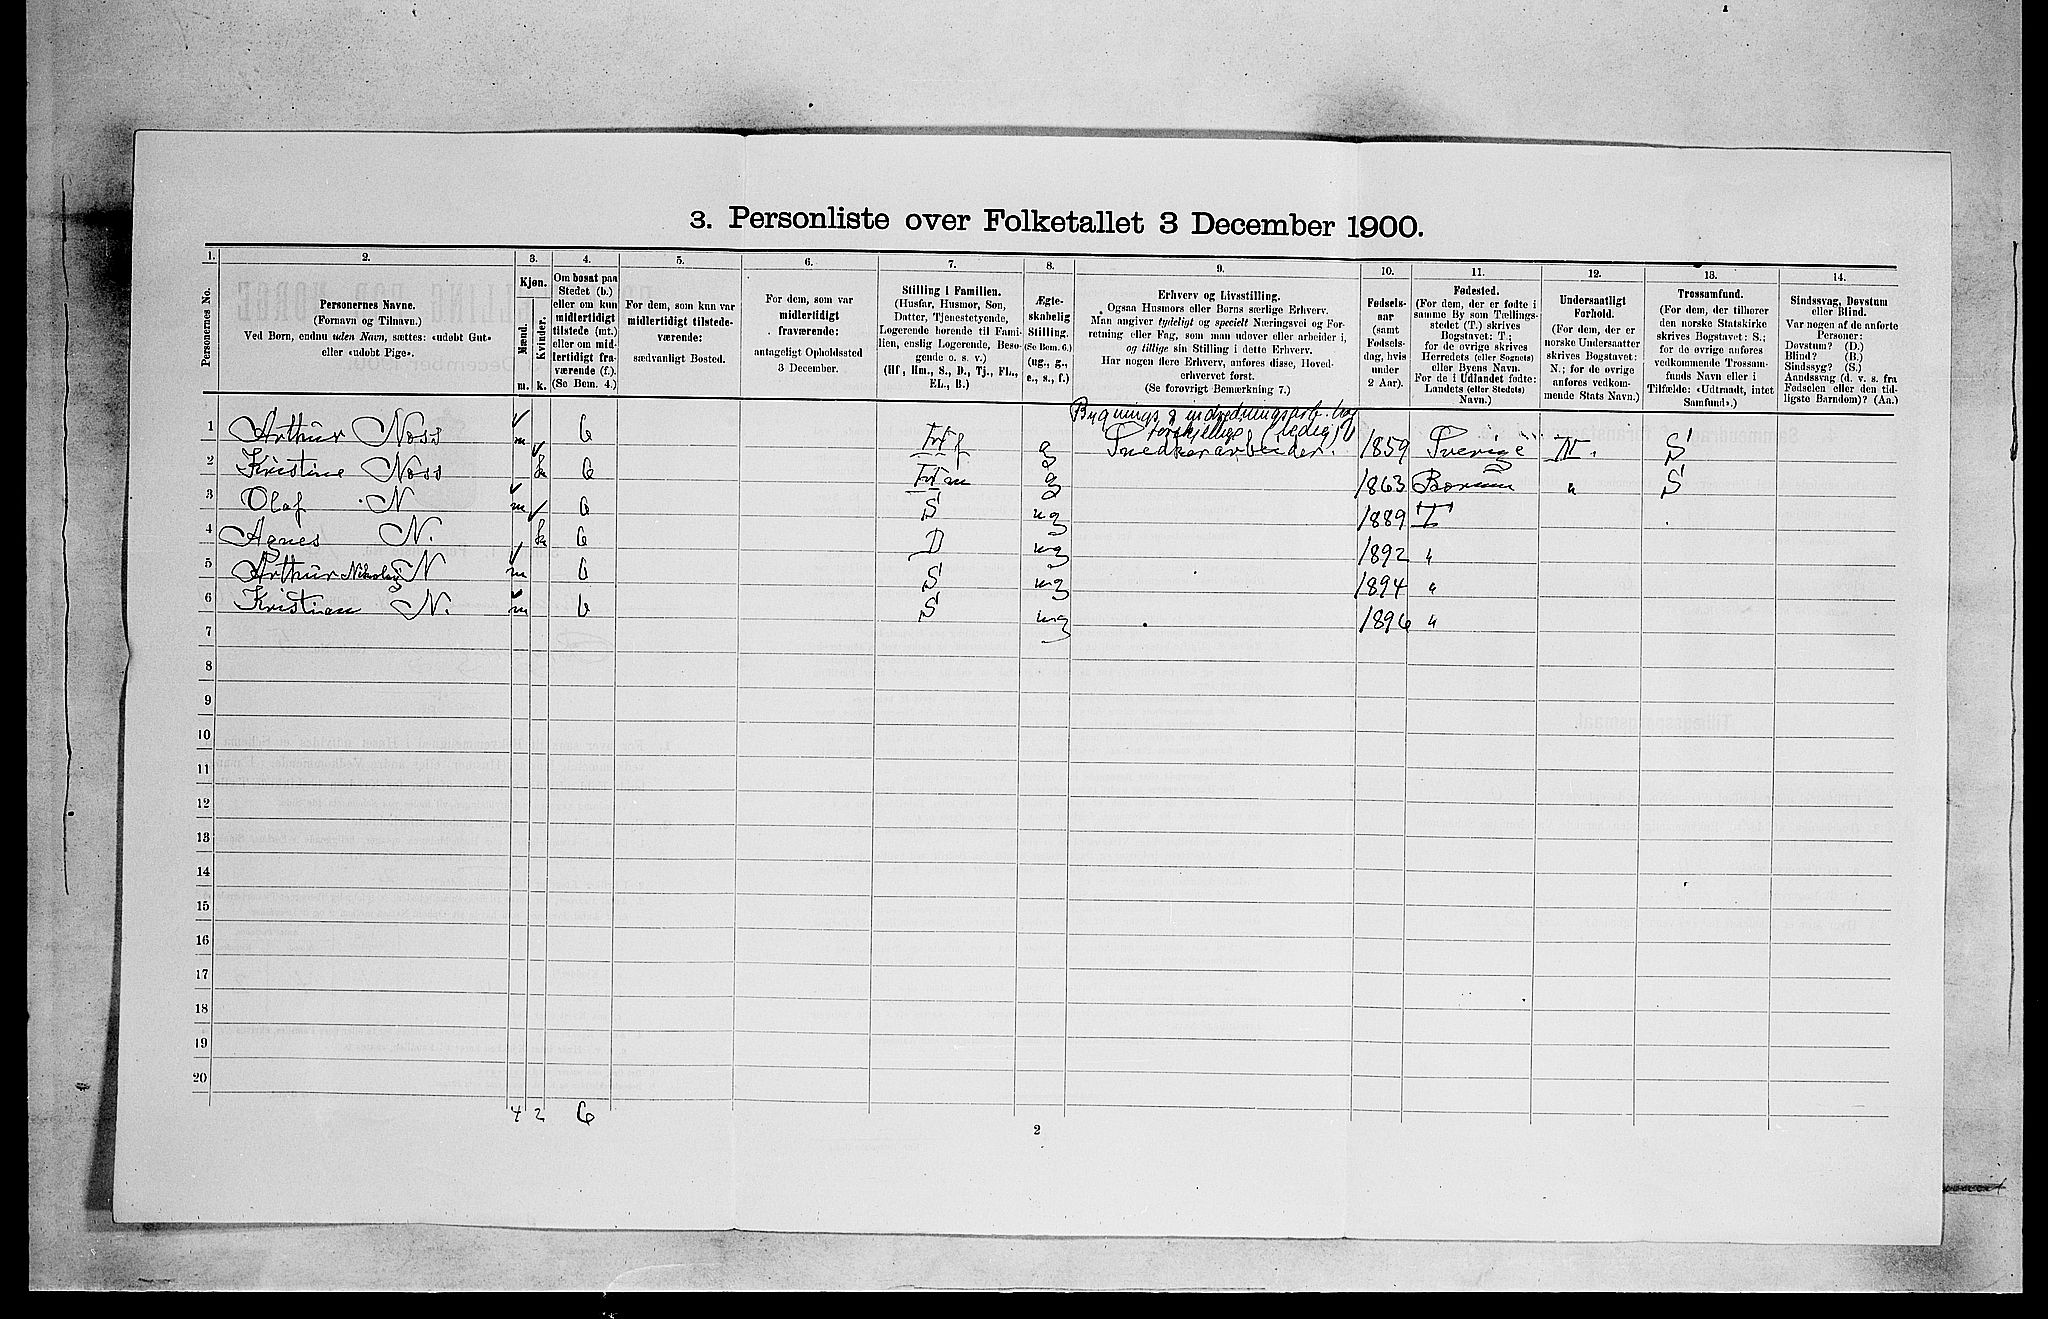 3. Personliste over Folketallet 3 December 1900.
1. 2. 3. 4. 5. 6. 7. 8. 9. 10. 11. 12. 13. 14.
Personernes No.
Personernes Navne.
(Fornavn og Tilnavn.)
Ved Børn, endnu uden Navn, sættes: «udøbt Gut»
eller «udøbt Pige».
Kjøn.
Mænd.
Kvinder.
m. k.
Om bosat paa
Stedet (b.)
eller om kun
midlertidigt
tilstede (mt.)
eller om mid-
lertidigt fra-
værende (f.).
(Se Bem. 4.)
For dem, som kun var
midlertidigt tilstede-
værende:
sædvanligt Bosted.
For dem, som var
midlertidigt
fraværende:
antageligt Opholdssted
3 December.
Stilling i Familien.
(Husfar, Husmor, Søn,
Datter, Tjenestetyende,
Logerende hørende til Fami-
lien, enslig Logerende, Besø-
gende o. s. v.)
(Hf., Hm., S., D., Tj., FL.,
EL., B.)
Ægte-
skabelig
Stilling.
(Se Bem. 6.)
(ug., g.,
e., s., f.)
Erhverv og Livsstilling.
Ogsaa Husmors eller Børns særlige Erhverv.
Man angiver tydeligt og specielt Næringsvei og For-
retning eller Fag, som man udøver eller arbeider i,
og tillige sin Stilling i dette Erhverv.
Har nogen flere Erhverv, anføres disse, Hoved-
erhvervet først.
(Se forøvrigt Bemærkning 7.)
Fødsels-
aar
(samt
Fødsels-
dag, hvis
under
2 Aar).
Fødested.
(For dem, der er fødte i
samme By som Tællings-
stedet (T.) skrives
Bogstavet: T.;
for de øvrige skrives
Herredets (eller Sognets)
eller Byens Navn.
For de i Udlandet fødte:
Landets (eller Stedets)
Navn.)
Undersaatligt
Forhold.
(For dem, der er
norske Undersaatter
skrives Bogstavet:
N.; for de øvrige
anføres vedkom-
mende Stats Navn.)
Trossamfund.
(For dem, der tilhører
den norske Statskirke
skrives Bogstavet: S.;
for de øvrige anføres
vedkommende Trossam-
funds Navn eller i
Tilfælde: «Udtraadt, intet
Samfund».)
Sindssvag, Døvstum
eller Blind.
Var nogen af de anførte
Personer:
Døvstum? (D.)
Blind? (B.)
Sindssyg? (S.)
Aandssvag (d. v. s. fra
Fødselen eller den tid-
ligste Barndom)? (Aa.)
Bygnings & indredningsarb.
forskjellige (ledig)
1 Arthur Noss m b Hf g Snedkerarbeider. 1859 Sverige N. S
2 Kristine Noss k b Hm g 1863 Bærum " S
3 Olaf N m b S ug 1889 T
4 Agnes N. k b D ug 1892 "
5 Arthur Nikolay N m b S ug 1894 "
6 Kristian N. m b S ug 1896 "
7
8
9
10
11
12
13
14
15
16
17
18
19
20
4 2 6
2